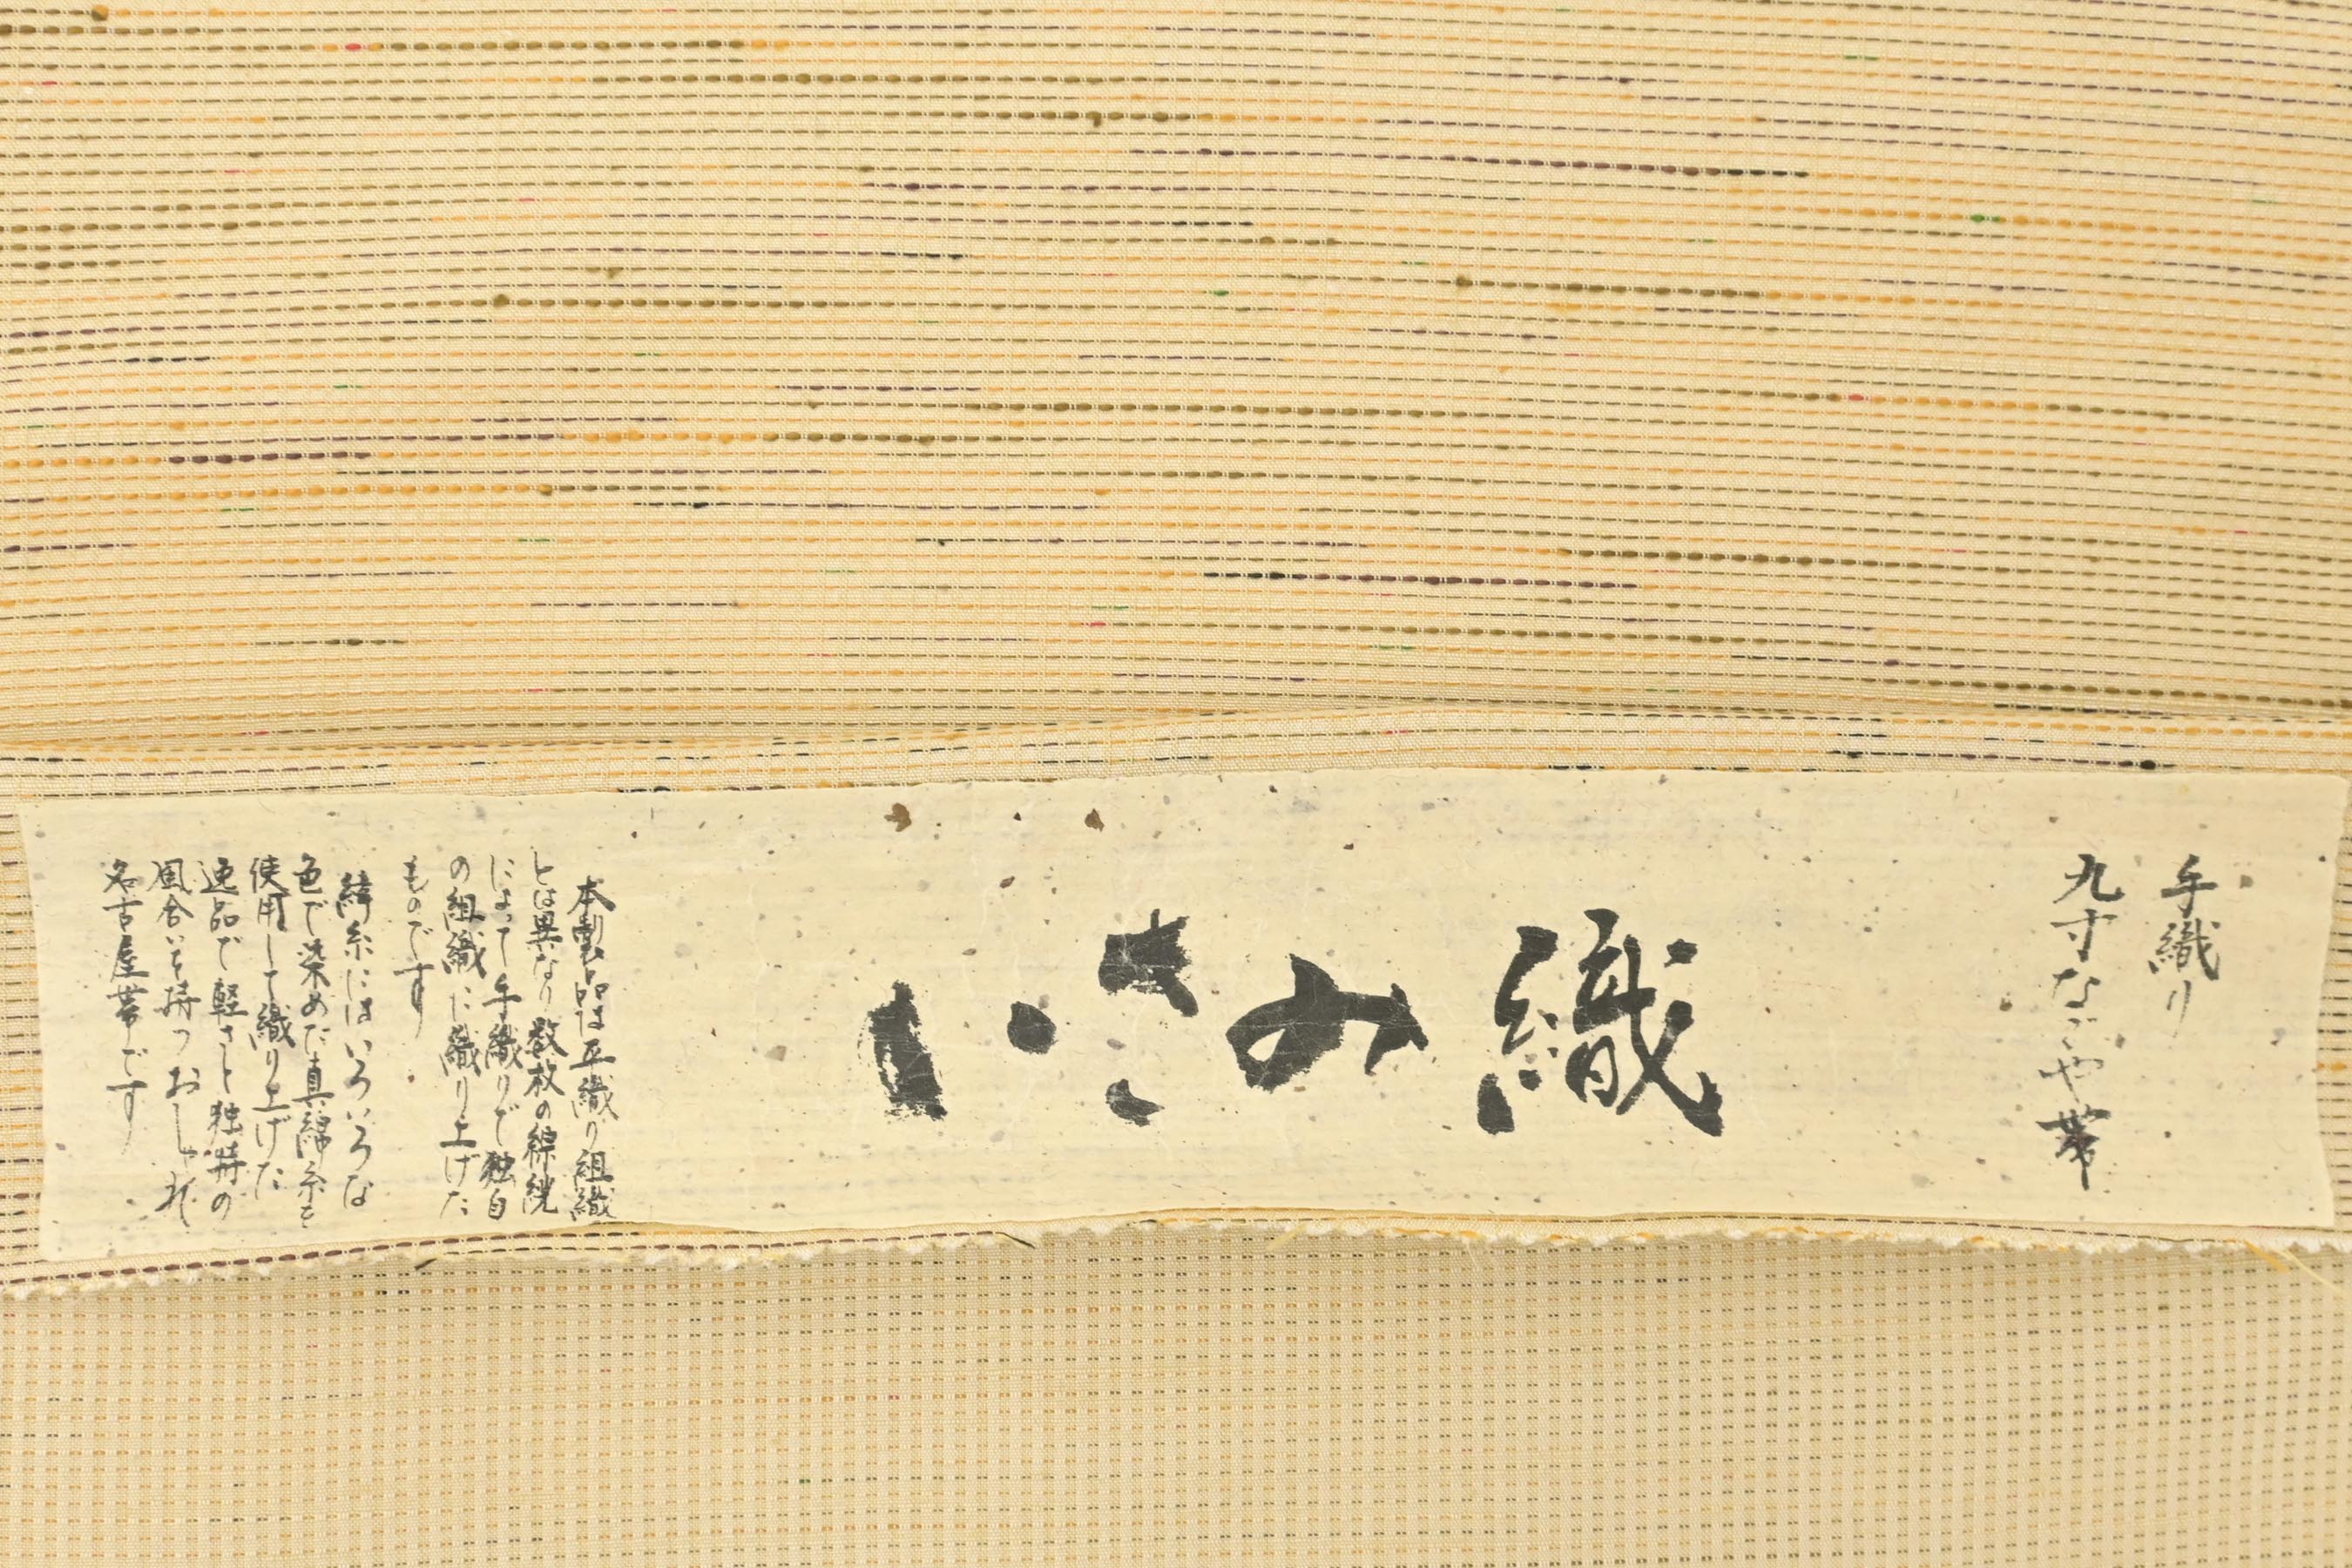 手織り
九寸なごや帯
いさみ織
本製品は平織り組織
とは異なり数枚の綜絖
によって手織りで独自
の組織に織り上げた
ものです
緯糸にはいろいろな
色で染めた真綿糸を
使用して織り上げた
逸品で軽さと独特の
風合いを持つおしゃれ
名古屋帯です